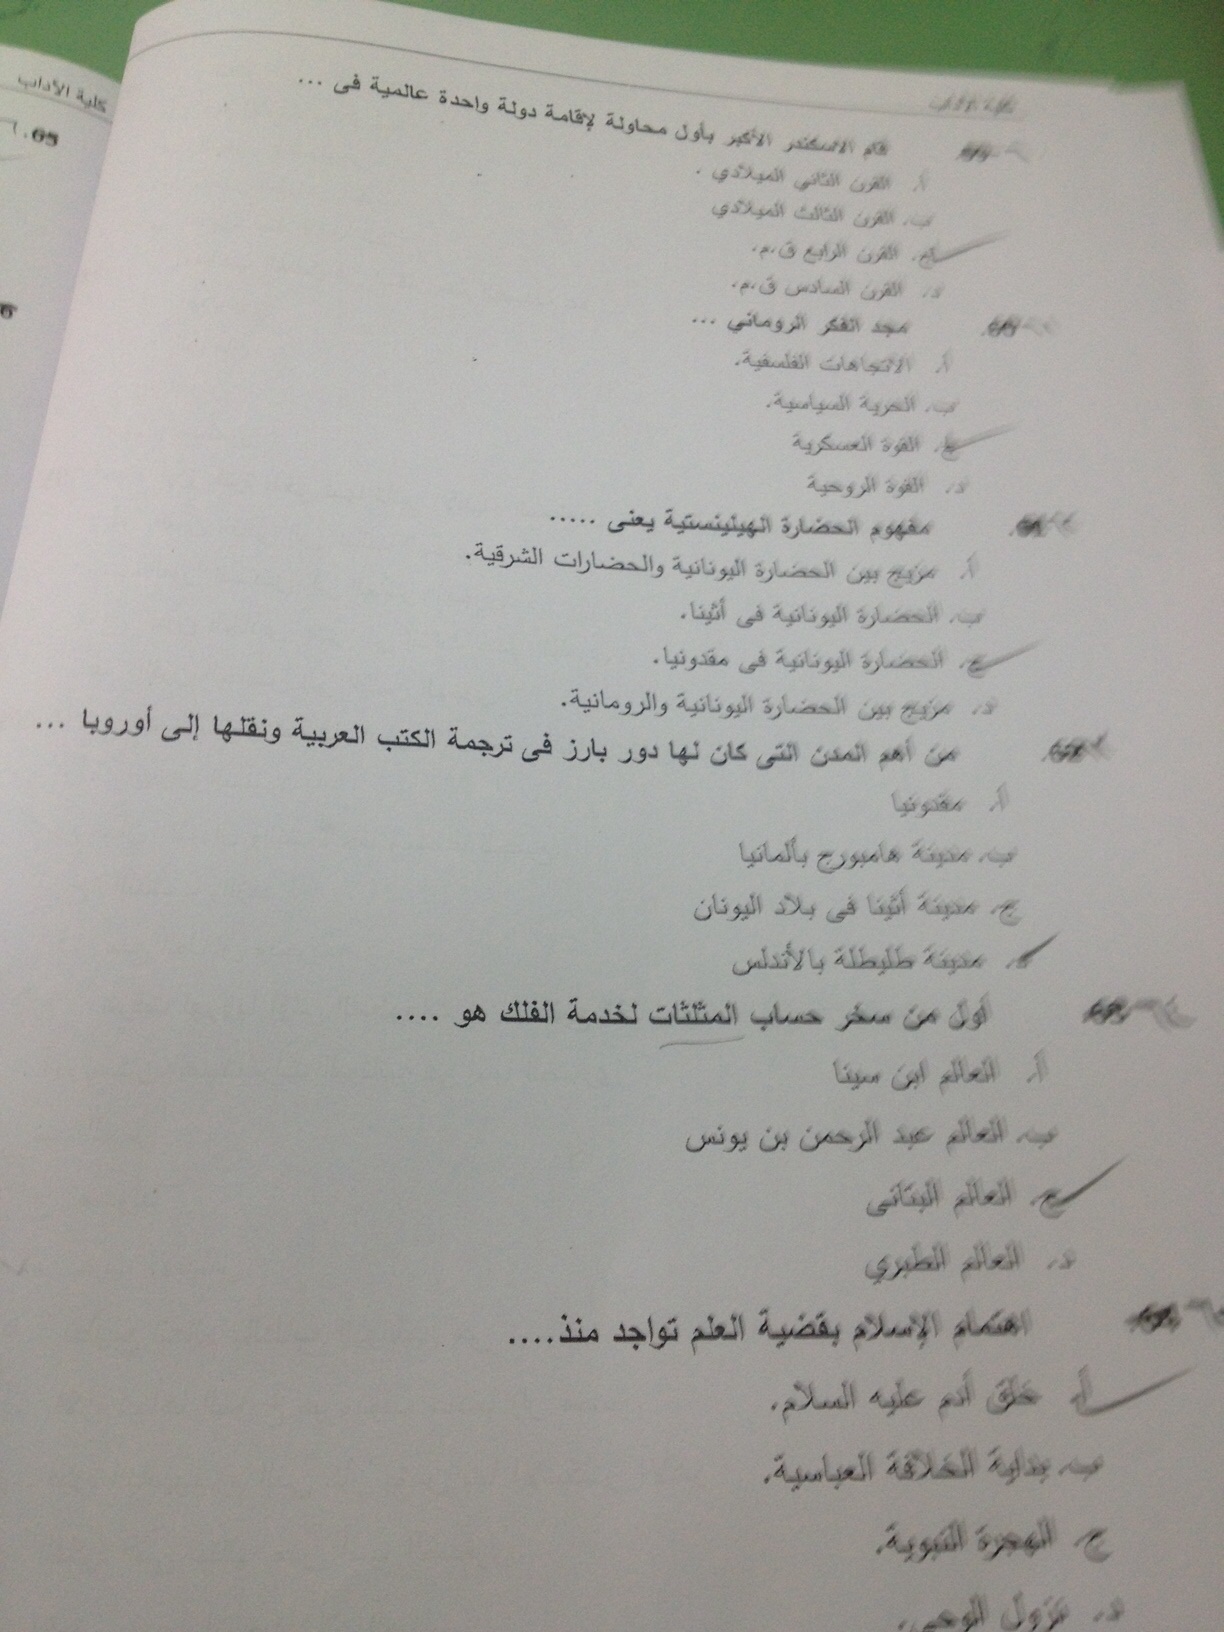 كلية الآداب
65.
كلية الآداب
قام الاسكندر الأكبر بأول محاولة لإقامة دولة واحدة عالمية فى ...
أ. القرن الثاني الميلادي .
ب. القرن الثالث الميلادي
ج. القرن الرابع ق.م.
د. القرن السادس ق.م.
مجد الفكر الروماني ...
أ. الاتجاهات الفلسفية.
ب. الحرية السياسية.
ج. القوة العسكرية
د. القوة الروحية
مفهوم الحضارة الهيلينستية يعنى .....
أ. مزيج بين الحضارة اليونانية والحضارات الشرقية.
ب. الحضارة اليونانية فى أثينا.
ج. الحضارة اليونانية فى مقدونيا.
د. مزيج بين الحضارة اليونانية والرومانية.
من أهم المدن التى كان لها دور بارز فى ترجمة الكتب العربية ونقلها إلى أوروبا ...
أ. مقدونيا
ب. مدينة هامبورج بألمانيا
ج. مدينة أثينا فى بلاد اليونان
د. مدينة طليطلة بالأندلس
أول من سخر حساب المثلثات لخدمة الفلك هو ....
أ. العالم ابن سينا
ب. العالم عبد الرحمن بن يونس
ج. العالم البتانى
د. العالم الطبري
اهتمام الإسلام بقضية العلم تواجد منذ....
أ. خلق آدم عليه السلام.
ب. بداية الخلافة العباسية.
ج. الهجرة النبوية.
د. نزول الوحى.